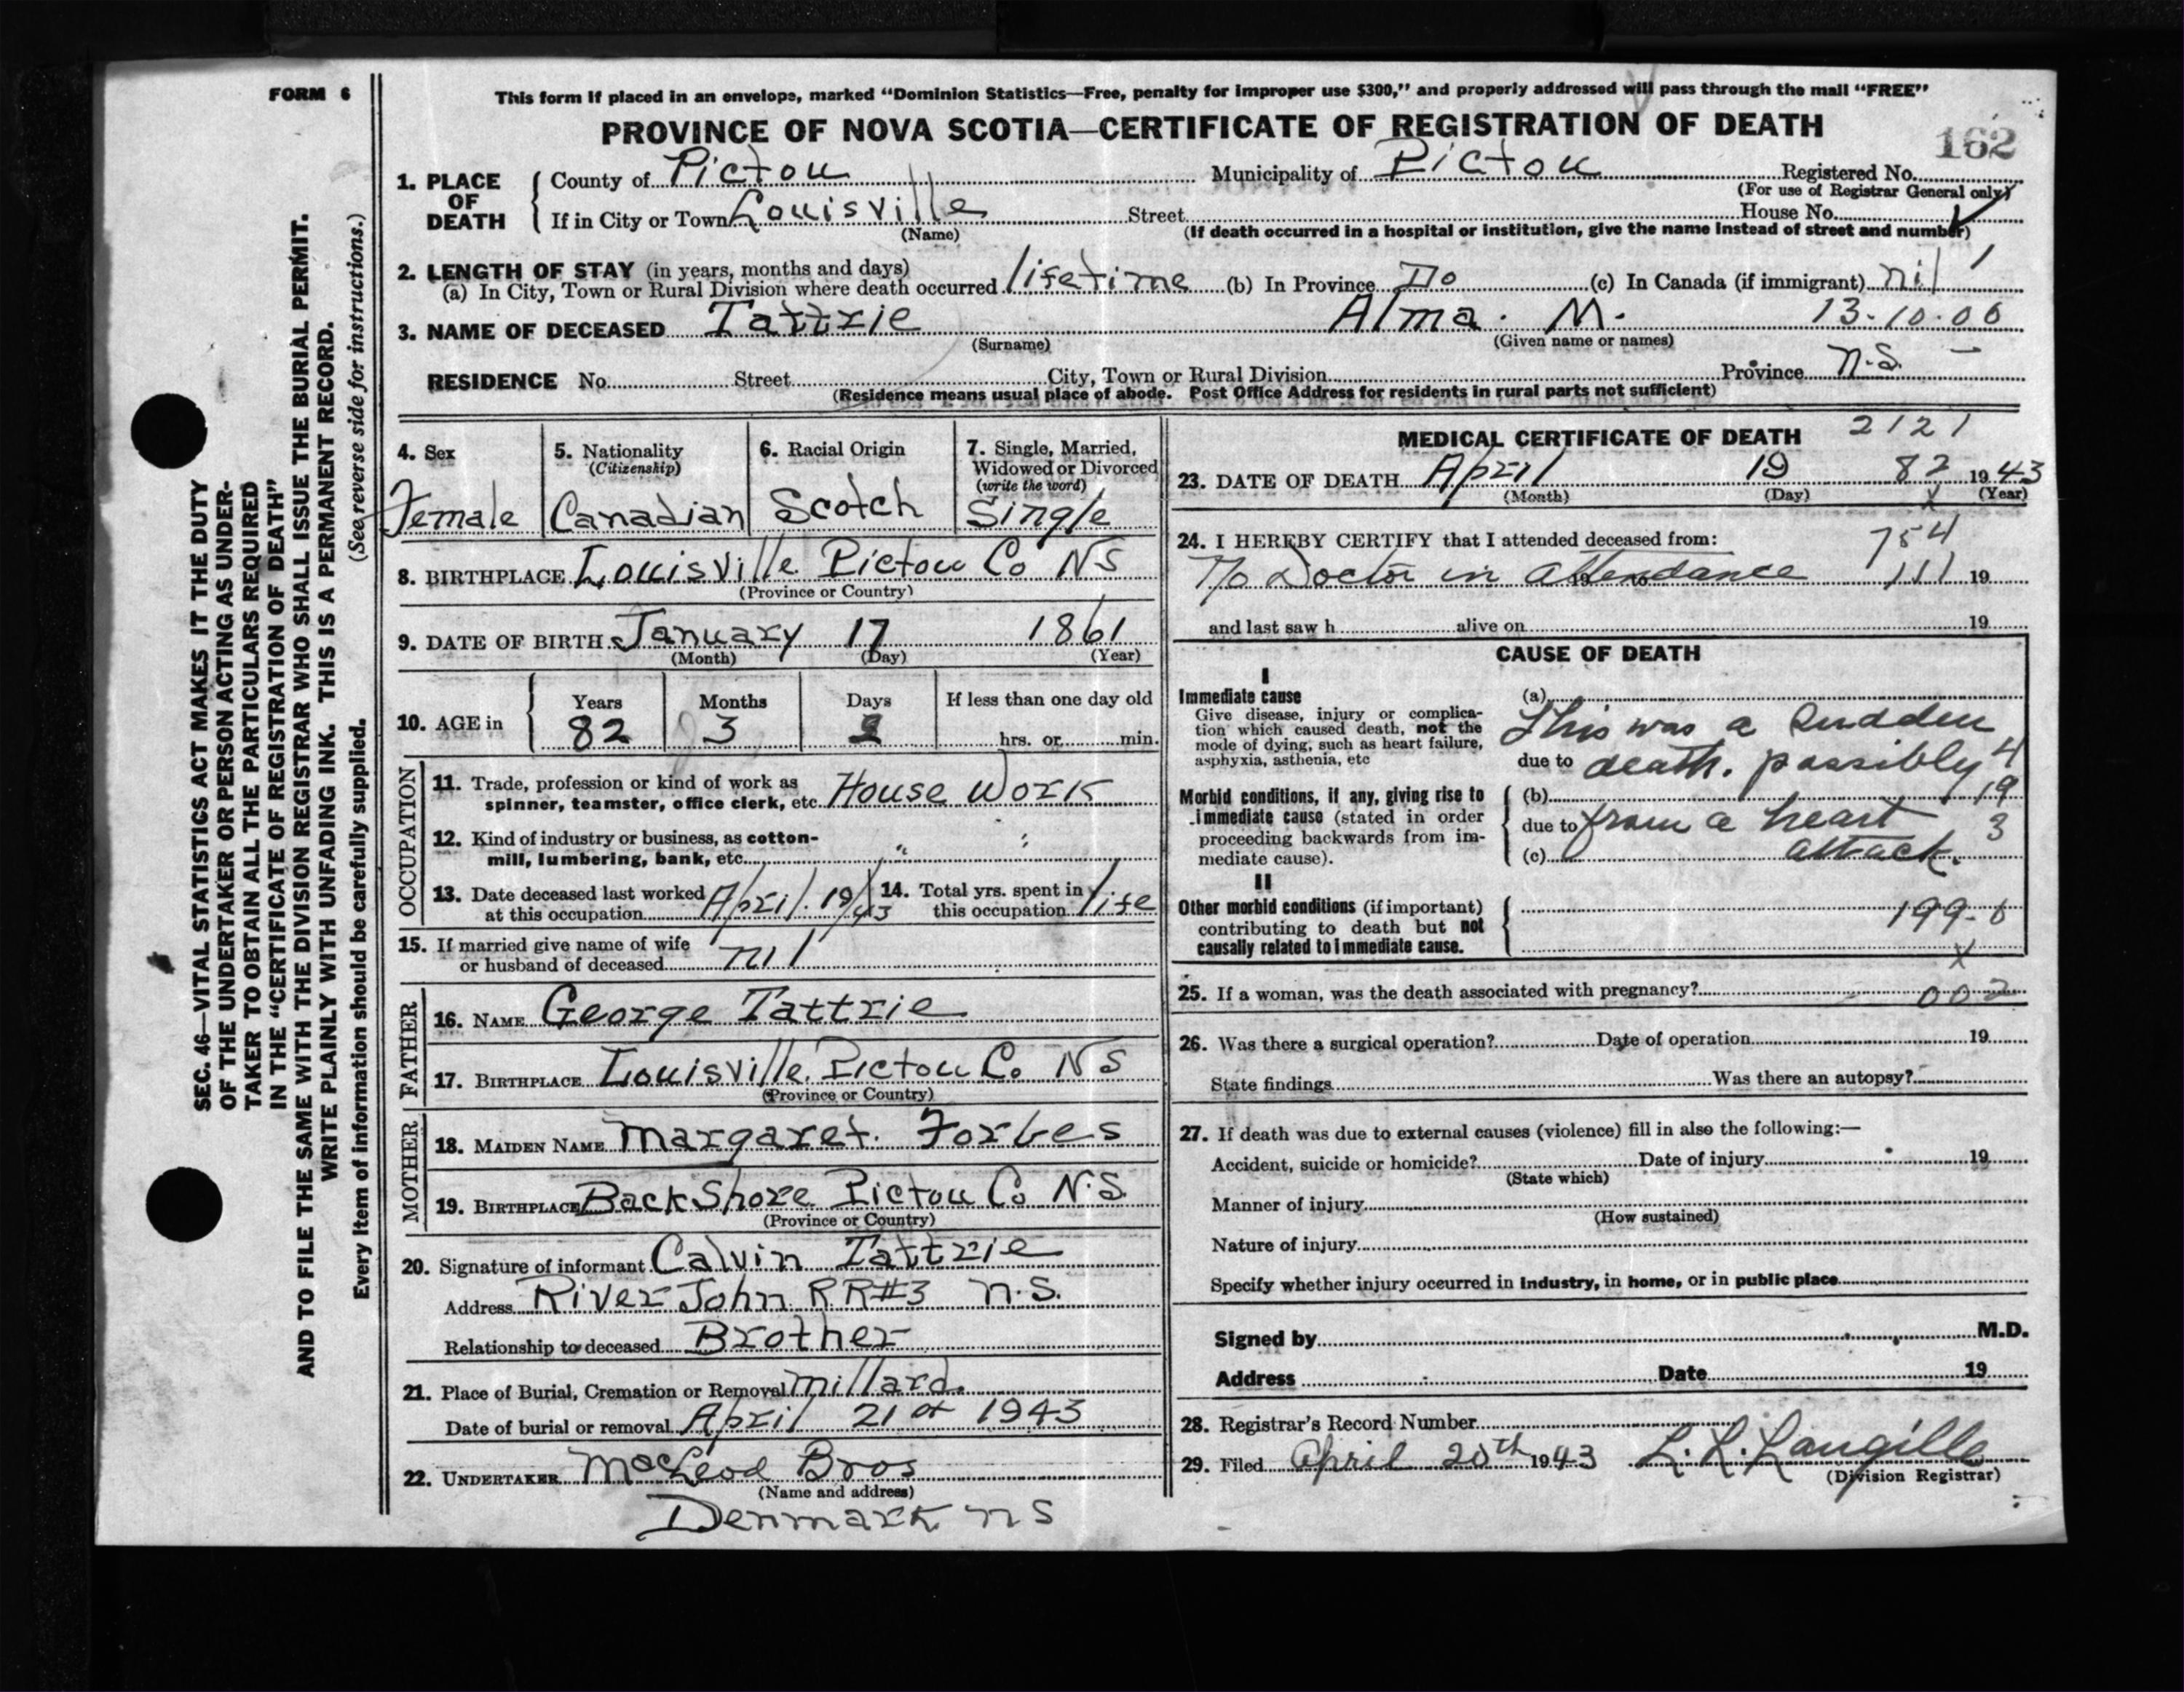 FORM 6
This form if placed in an envelope, marked “Dominion Statistics—Free, penalty for improper use $300,” and properly addressed will pass through the mail “FREE”
PROVINCE OF NOVA SCOTIA—CERTIFICATE OF REGISTRATION OF DEATH
162
1. PLACE OF DEATH
County of Pictou Municipality of Pictou Registered No.
(For use of Registrar General only)
If in City or Town Louisville Street House No.
(Name) (If death occurred in a hospital or institution, give the name instead of street and number)
2. LENGTH OF STAY (in years, months and days)
(a) In City, Town or Rural Division where death occurred lifetime (b) In Province Do (c) In Canada (if immigrant) nil
3. NAME OF DECEASED Tattrie Alma. M. 13-10-06
(Surname) (Given name or names)
RESIDENCE No. Street City, Town or Rural Division Province N.S.
(Residence means usual place of abode. Post Office Address for residents in rural parts not sufficient)
4. Sex Female
5. Nationality (Citizenship) Canadian
6. Racial Origin Scotch
7. Single, Married, Widowed or Divorced (write the word) Single
8. BIRTHPLACE Louisville Pictou Co NS
(Province or Country)
9. DATE OF BIRTH January 17 1861
(Month) (Day) (Year)
10. AGE in Years 82 Months 3 Days 2 If less than one day old
hrs. or min.
OCCUPATION
11. Trade, profession or kind of work as
spinner, teamster, office clerk, etc. House Work
12. Kind of industry or business, as cotton-
mill, lumbering, bank, etc. " "
13. Date deceased last worked at this occupation April 19/43
14. Total yrs. spent in this occupation life
15. If married give name of wife
or husband of deceased nil
FATHER
16. NAME George Tattrie
17. BIRTHPLACE Louisville. Pictou Co NS
(Province or Country)
MOTHER
18. MAIDEN NAME Margaret. Forbes
19. BIRTHPLACE Back Shore Pictou Co N.S.
(Province or Country)
20. Signature of informant Calvin Tattrie
Address River John R.R#3 N.S.
Relationship to deceased Brother
21. Place of Burial, Cremation or Removal Millard.
Date of burial or removal April 21st 1943
22. UNDERTAKER McLeod Bros
(Name and address)
Denmark NS
MEDICAL CERTIFICATE OF DEATH 2121
23. DATE OF DEATH April 19 82 1943
(Month) (Day) x (Year)
24. I HEREBY CERTIFY that I attended deceased from: 754
No Doctor in Attendance 111 19
and last saw h alive on 19
CAUSE OF DEATH
I
Immediate cause
Give disease, injury or complica-
tion which caused death, not the
mode of dying, such as heart failure,
asphyxia, asthenia, etc
(a)
This was a sudden
due to death. possibly 4
Morbid conditions, if any, giving rise to
immediate cause (stated in order
proceeding backwards from im-
mediate cause).
(b) 19
due to from a heart 3
(c) attack.
II
Other morbid conditions (if important)
contributing to death but not
causally related to immediate cause.
199-6
x
25. If a woman, was the death associated with pregnancy? 002
26. Was there a surgical operation? Date of operation 19
State findings Was there an autopsy?
27. If death was due to external causes (violence) fill in also the following:—
Accident, suicide or homicide? Date of injury 19
(State which)
Manner of injury
(How sustained)
Nature of injury
Specify whether injury occurred in industry, in home, or in public place
Signed by M.D.
Address Date 19
28. Registrar's Record Number
29. Filed April 20th 1943 L. R. Langille
(Division Registrar)
SEC. 46—VITAL STATISTICS ACT MAKES IT THE DUTY
OF THE UNDERTAKER OR PERSON ACTING AS UNDER-
TAKER TO OBTAIN ALL THE PARTICULARS REQUIRED
IN THE “CERTIFICATE OF REGISTRATION OF DEATH”
AND TO FILE THE SAME WITH THE DIVISION REGISTRAR WHO SHALL ISSUE THE BURIAL PERMIT.
WRITE PLAINLY WITH UNFADING INK. THIS IS A PERMANENT RECORD.
Every item of information should be carefully supplied. (See reverse side for instructions.)